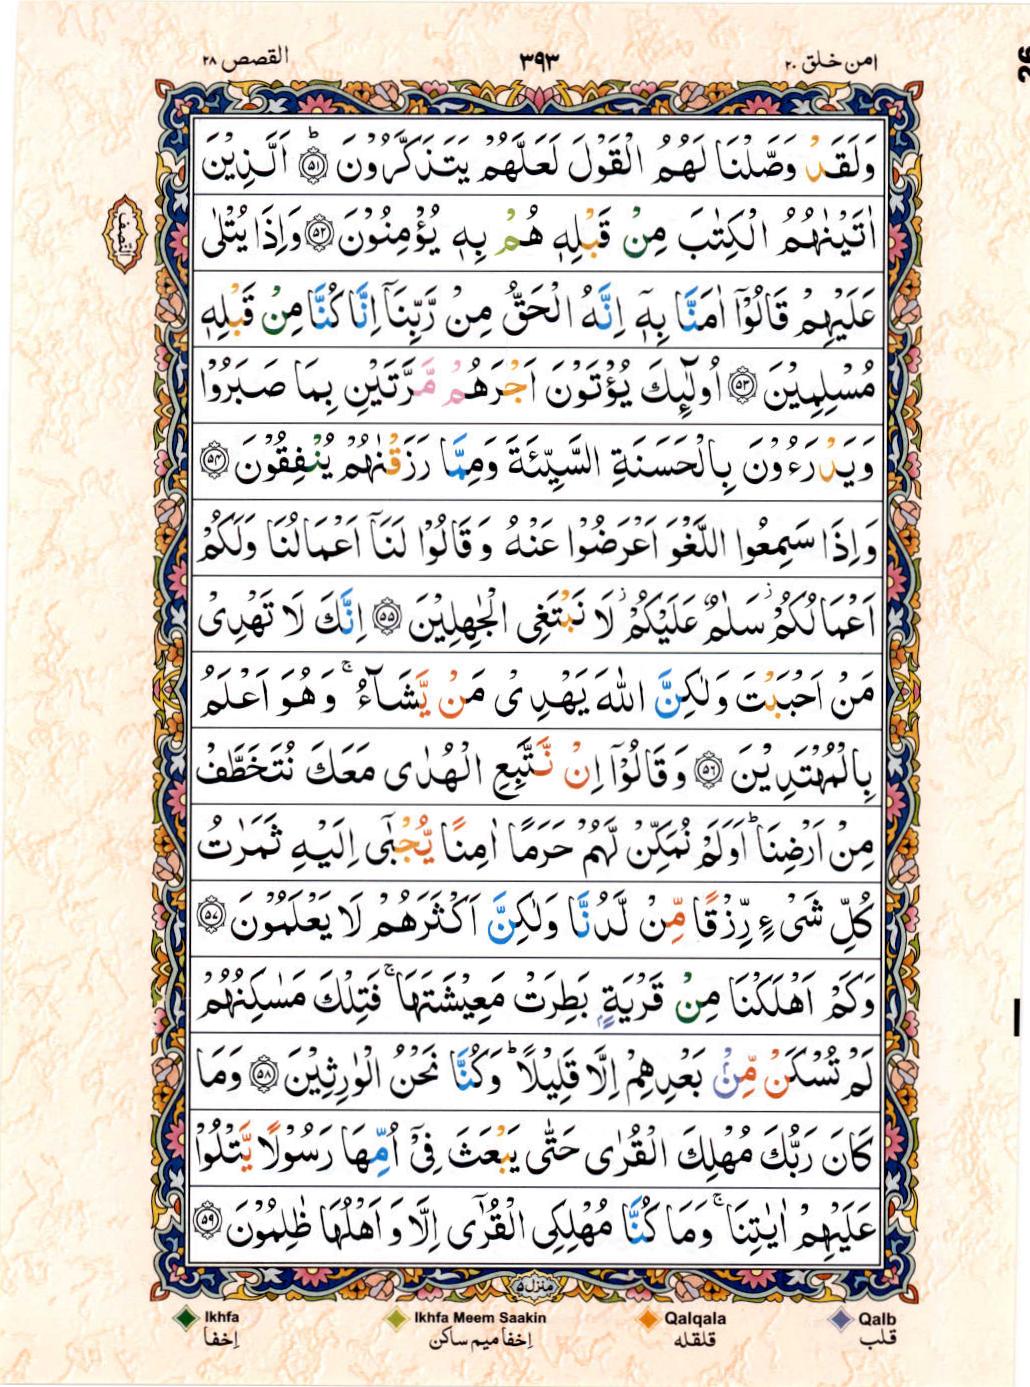 امن خلق ٢٠
٣٩٣
القصص ٢٨
26
وَلَقَدْ وَصَّلْنَا لَهُمُ الْقَوْلَ لَعَلَّهُمْ يَتَذَكَّرُوْنَ ؕ﴿۵۱﴾ اَلَّذِيْنَ
اٰتَيْنٰهُمُ الْكِتٰبَ مِنْ قَبْلِهٖ هُمْ بِهٖ يُؤْمِنُوْنَ ﴿۵۲﴾ وَاِذَا يُتْلٰى
النصف
عَلَيْهِمْ قَالُوْۤا اٰمَنَّا بِهٖۤ اِنَّهُ الْحَقُّ مِنْ رَّبِّنَاۤ اِنَّا كُنَّا مِنْ قَبْلِهٖ
مُسْلِمِيْنَ ﴿۵۳﴾ اُولٰٓئِكَ يُؤْتَوْنَ اَجْرَهُمْ مَّرَّتَيْنِ بِمَا صَبَرُوْا
وَيَدْرَءُوْنَ بِالْحَسَنَةِ السَّيِّئَةَ وَمِمَّا رَزَقْنٰهُمْ يُنْفِقُوْنَ ﴿۵۴﴾
وَاِذَا سَمِعُوا اللَّغْوَ اَعْرَضُوْا عَنْهُ وَقَالُوْا لَنَاۤ اَعْمَالُنَا وَلَكُمْ
اَعْمَالُكُمْ ؗ سَلٰمٌ عَلَيْكُمْ ؗ لَا نَبْتَغِى الْجٰهِلِيْنَ ﴿۵۵﴾ اِنَّكَ لَا تَهْدِىْ
مَنْ اَحْبَبْتَ وَلٰكِنَّ اللّٰهَ يَهْدِىْ مَنْ يَّشَآءُ ۚ وَهُوَ اَعْلَمُ
بِالْمُهْتَدِيْنَ ﴿۵۶﴾ وَقَالُوْۤا اِنْ نَّتَّبِعِ الْهُدٰى مَعَكَ نُتَخَطَّفْ
مِنْ اَرْضِنَا ؕ اَوَلَمْ نُمَكِّنْ لَّهُمْ حَرَمًا اٰمِنًا يُّجْبٰۤى اِلَيْهِ ثَمَرٰتُ
كُلِّ شَىْءٍ رِّزْقًا مِّنْ لَّدُنَّا وَلٰكِنَّ اَكْثَرَهُمْ لَا يَعْلَمُوْنَ ﴿۵۷﴾
وَكَمْ اَهْلَكْنَا مِنْ قَرْيَةٍۭ بَطِرَتْ مَعِيْشَتَهَا ۚ فَتِلْكَ مَسٰكِنُهُمْ
لَمْ تُسْكَنْ مِّنْۢ بَعْدِهِمْ اِلَّا قَلِيْلًا ؕ وَكُنَّا نَحْنُ الْوٰرِثِيْنَ ﴿۵۸﴾ وَمَا
كَانَ رَبُّكَ مُهْلِكَ الْقُرٰى حَتّٰى يَبْعَثَ فِىْۤ اُمِّهَا رَسُوْلًا يَّتْلُوْا
عَلَيْهِمْ اٰيٰتِنَا ۚ وَمَا كُنَّا مُهْلِكِى الْقُرٰٓى اِلَّا وَاَهْلُهَا ظٰلِمُوْنَ ﴿۵۹﴾
منزل ۵
Ikhfa
Ikhfa Meem Saakin
Qalqala
Qalb
اِخفا
اِخفا میم ساکن
قلقله
قلب